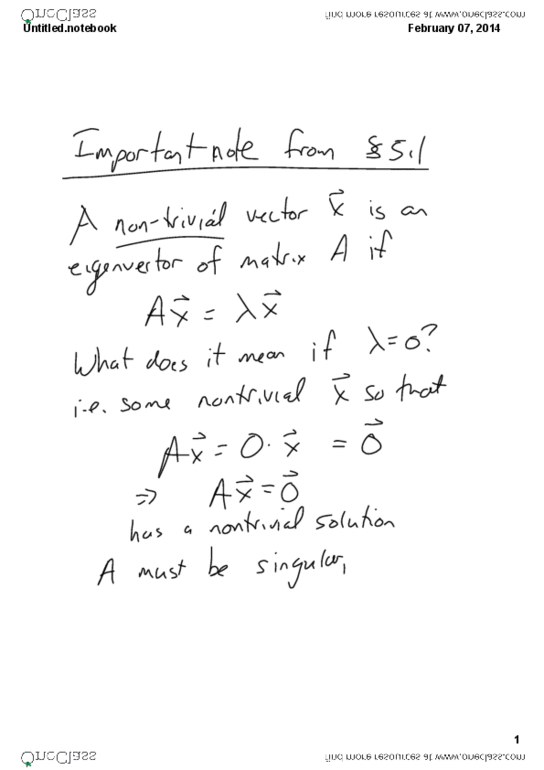 OneClass
find more resources at www.oneclass.com
Untitled.notebook
February 07, 2014
Important note from § 5.1
A non-trivial vector x⃗ is an
eigenvector of matrix A if
Ax⃗ = λx⃗
What does it mean if λ=0?
i.e. some nontrivial x⃗ so that
Ax⃗ = 0·x⃗ = 0⃗
⇒ Ax⃗ = 0⃗
has a nontrivial solution
A must be singular,
1
OneClass
find more resources at www.oneclass.com